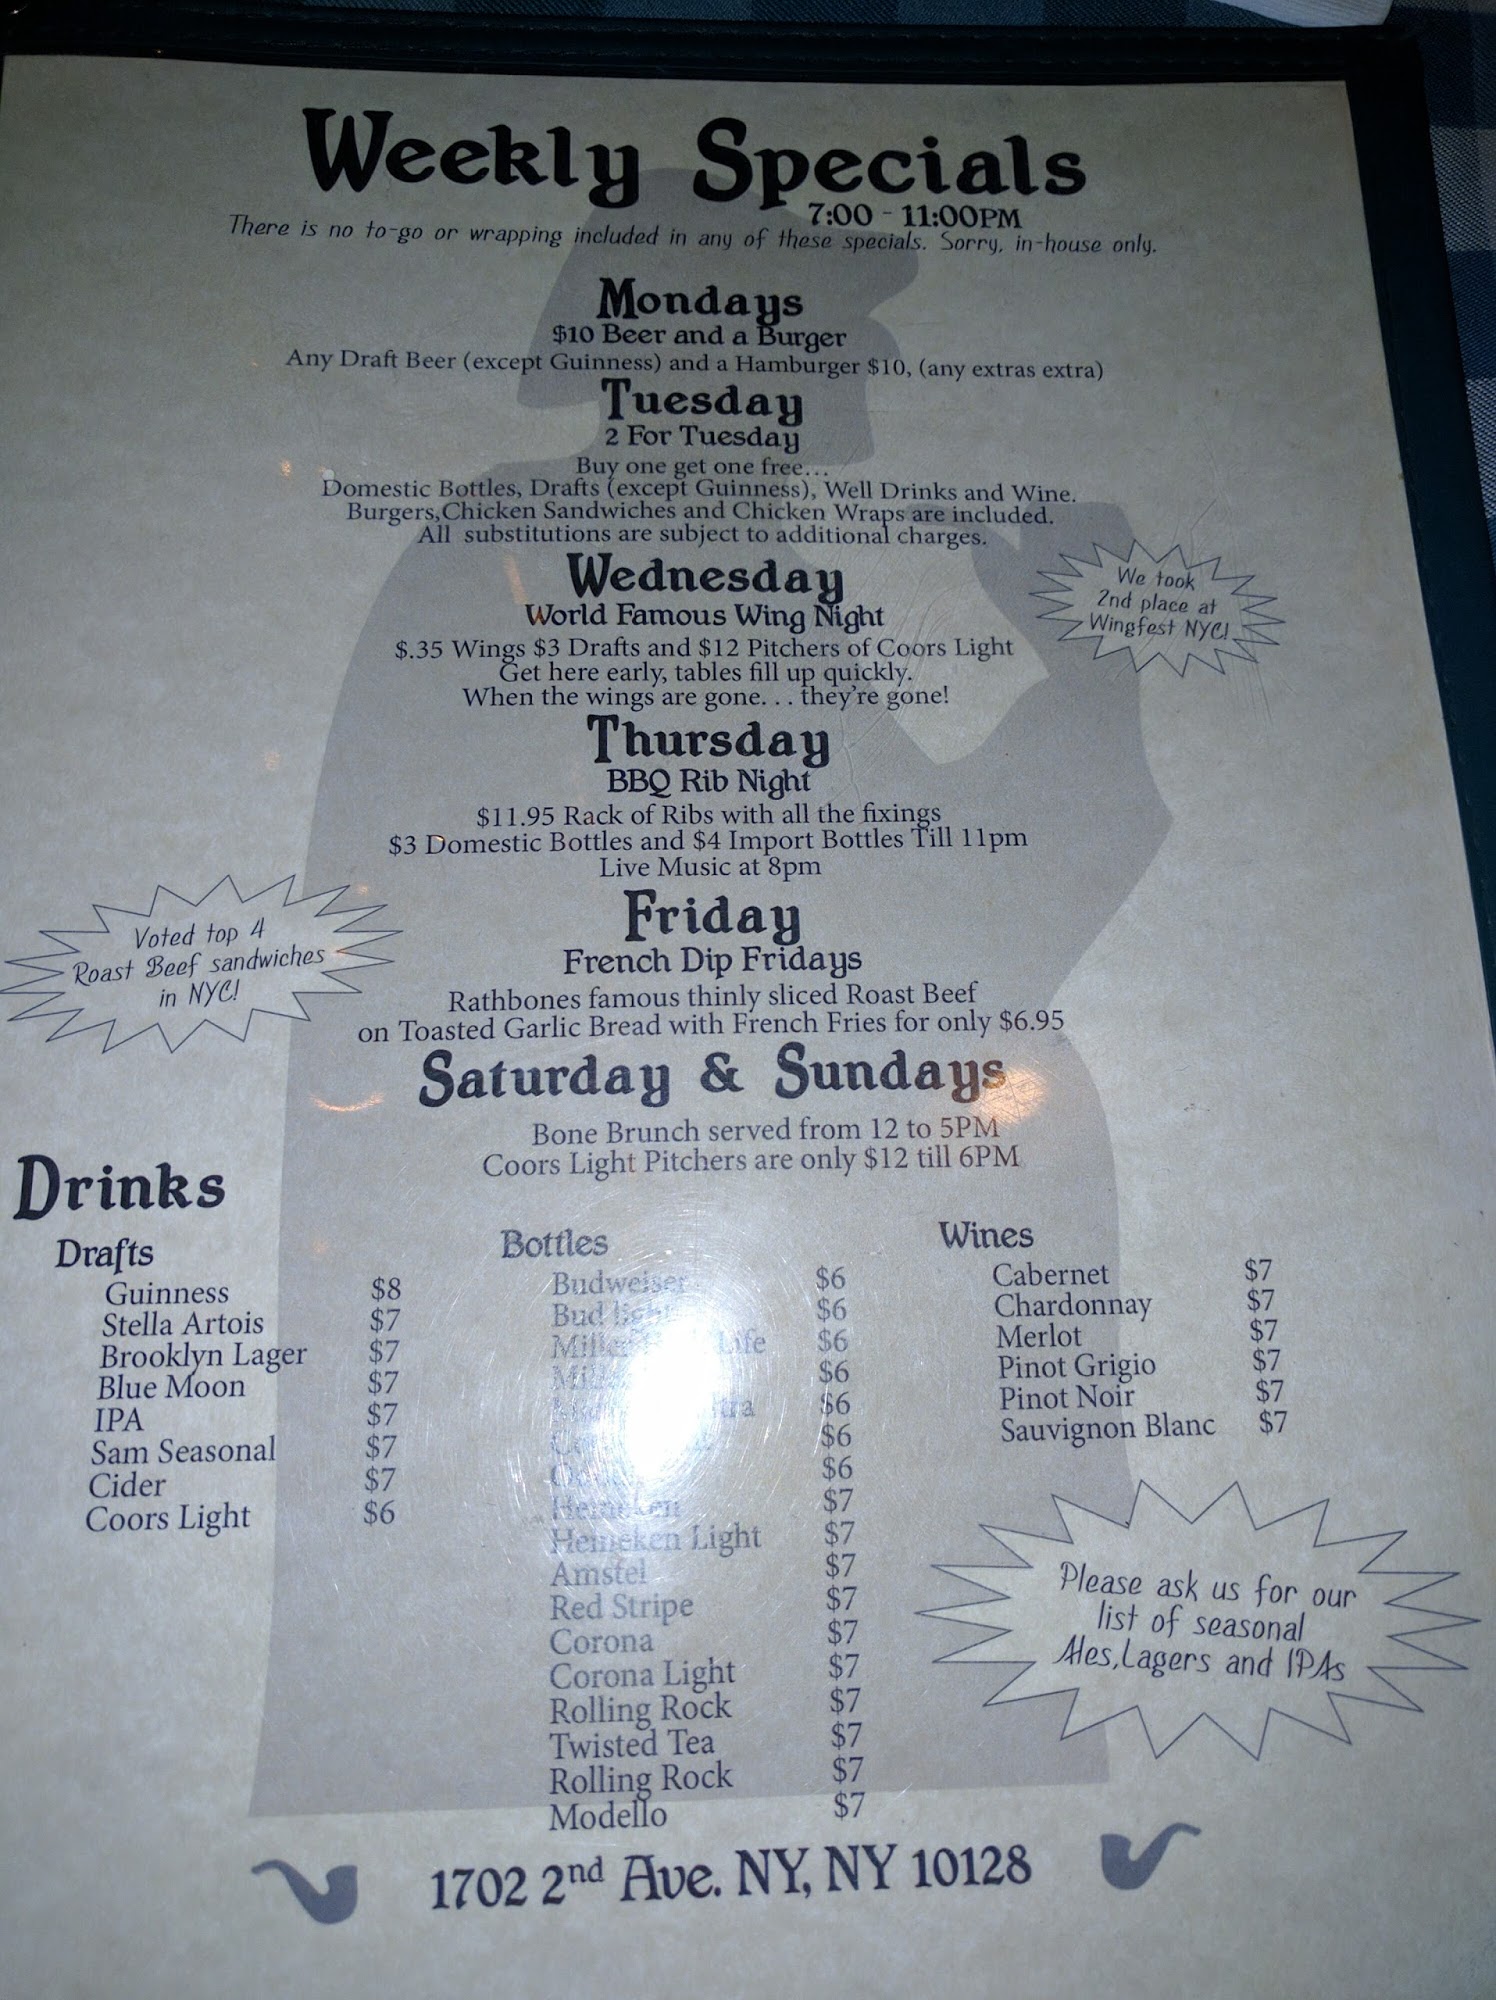 Weekly Specials
7:00 - 11:00PM
There is no to-go or wrapping included in any of these specials. Sorry, in-house only.
Mondays
$10 Beer and a Burger
Any Draft Beer (except Guinness) and a Hamburger $10, (any extras extra)
Tuesday
2 For Tuesday
Buy one get one free...
Domestic Bottles, Drafts (except Guinness), Well Drinks and Wine.
Burgers,Chicken Sandwiches and Chicken Wraps are included.
All substitutions are subject to additional charges.
Wednesday
World Famous Wing Night
$.35 Wings $3 Drafts and $12 Pitchers of Coors Light
Get here early, tables fill up quickly.
When the wings are gone. . . they're gone!
We took
2nd place at
Wingfest NYC!
Thursday
BBQ Rib Night
$11.95 Rack of Ribs with all the fixings
$3 Domestic Bottles and $4 Import Bottles Till 11pm
Live Music at 8pm
Friday
French Dip Fridays
Rathbones famous thinly sliced Roast Beef
on Toasted Garlic Bread with French Fries for only $6.95
Voted top 4
Roast Beef sandwiches
in NYC!
Saturday & Sundays
Bone Brunch served from 12 to 5PM
Coors Light Pitchers are only $12 till 6PM
Drinks
Drafts
Guinness $8
Stella Artois $7
Brooklyn Lager $7
Blue Moon $7
IPA $7
Sam Seasonal $7
Cider $7
Coors Light $6
Bottles
Budweiser $6
Bud light $6
Miller Life $6
$6
$6
$6
$6
Heineken $7
Heineken Light $7
Amstel $7
Red Stripe $7
Corona $7
Corona Light $7
Rolling Rock $7
Twisted Tea $7
Rolling Rock $7
Modello $7
Wines
Cabernet $7
Chardonnay $7
Merlot $7
Pinot Grigio $7
Pinot Noir $7
Sauvignon Blanc $7
Please ask us for our
list of seasonal
Ales,Lagers and IPAs
1702 2nd Ave. NY, NY 10128